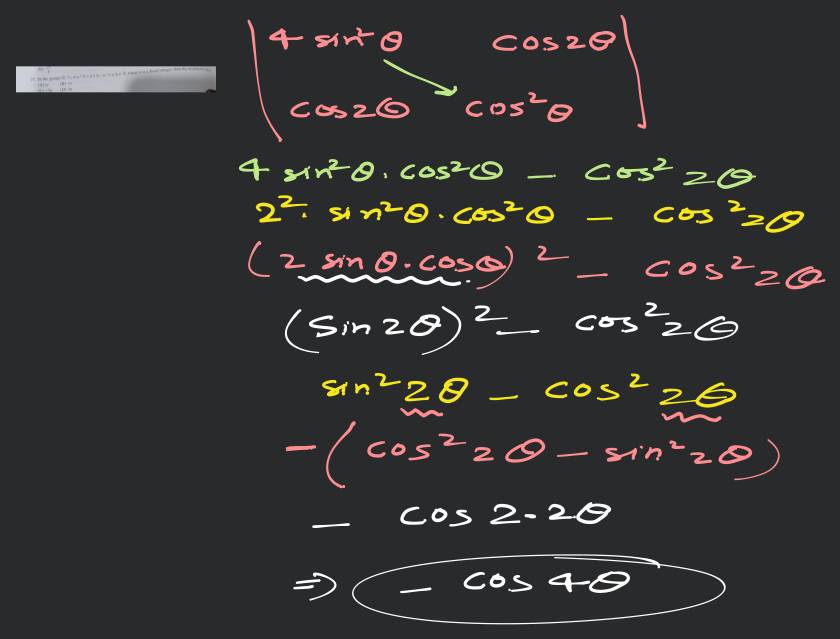 4 sin²θ cos2θ
cos2θ cos²θ
4 sin²θ. cos²θ - cos² 2θ
2². sin²θ.cos²θ - cos²2θ
(2 sin θ.cosθ)² - cos²2θ
(Sin 2θ)² - cos²2θ
sin² 2θ - cos² 2θ
-(cos² 2θ - sin² 2θ)
- cos 2.2θ
⇒ - cos 4θ